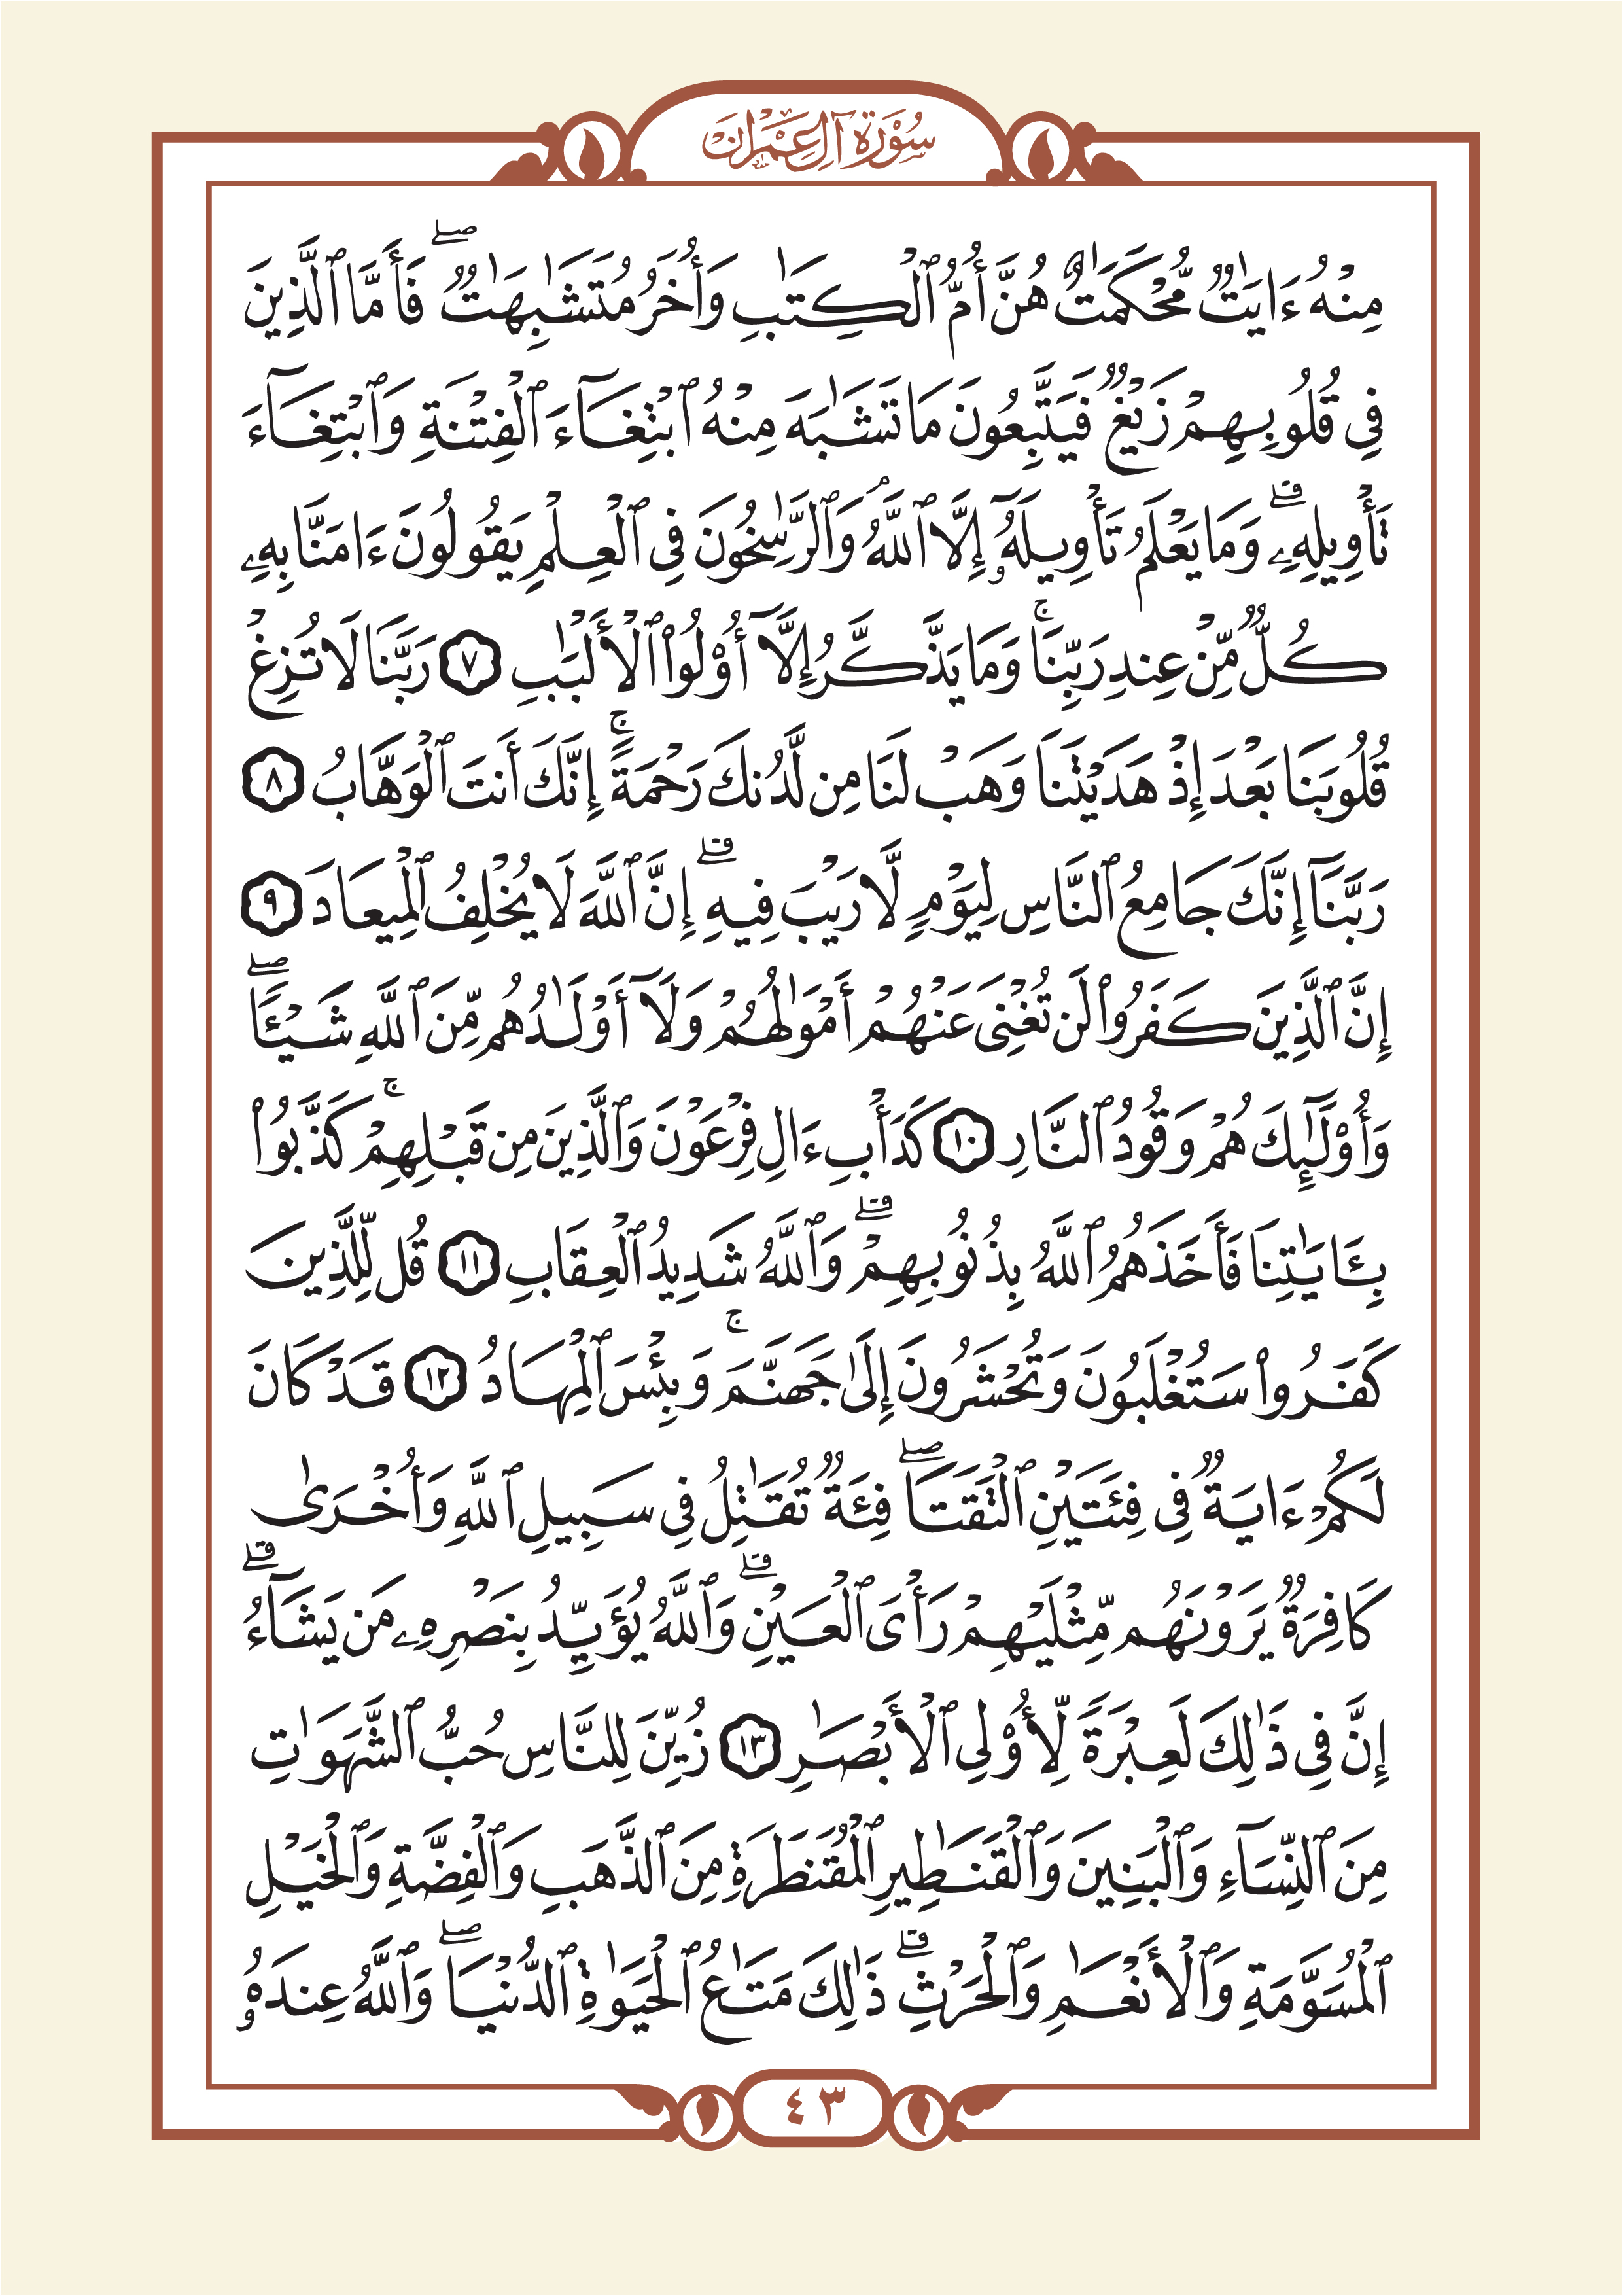 سُورَةُ آلِ عِمْرَانَ
مِنْهُ ءَايَٰتٌ مُّحْكَمَٰتٌ هُنَّ أُمُّ ٱلْكِتَٰبِ وَأُخَرُ مُتَشَٰبِهَٰتٌ ۖ فَأَمَّا ٱلَّذِينَ
فِى قُلُوبِهِمْ زَيْغٌ فَيَتَّبِعُونَ مَا تَشَٰبَهَ مِنْهُ ٱبْتِغَآءَ ٱلْفِتْنَةِ وَٱبْتِغَآءَ
تَأْوِيلِهِۦ ۗ وَمَا يَعْلَمُ تَأْوِيلَهُۥٓ إِلَّا ٱللَّهُ ۘ وَٱلرَّٰسِخُونَ فِى ٱلْعِلْمِ يَقُولُونَ ءَامَنَّا بِهِۦ
كُلٌّ مِّنْ عِندِ رَبِّنَا ۚ وَمَا يَذَّكَّرُ إِلَّآ أُو۟لُوا۟ ٱلْأَلْبَٰبِ ٧ رَبَّنَا لَا تُزِغْ
قُلُوبَنَا بَعْدَ إِذْ هَدَيْتَنَا وَهَبْ لَنَا مِن لَّدُنكَ رَحْمَةً ۚ إِنَّكَ أَنتَ ٱلْوَهَّابُ ٨
رَبَّنَآ إِنَّكَ جَامِعُ ٱلنَّاسِ لِيَوْمٍ لَّا رَيْبَ فِيهِ ۗ إِنَّ ٱللَّهَ لَا يُخْلِفُ ٱلْمِيعَادَ ٩
إِنَّ ٱلَّذِينَ كَفَرُوا۟ لَن تُغْنِىَ عَنْهُمْ أَمْوَٰلُهُمْ وَلَآ أَوْلَٰدُهُم مِّنَ ٱللَّهِ شَيْـًٔا ۖ
وَأُو۟لَٰٓئِكَ هُمْ وَقُودُ ٱلنَّارِ ١٠ كَدَأْبِ ءَالِ فِرْعَوْنَ وَٱلَّذِينَ مِن قَبْلِهِمْ ۚ كَذَّبُوا۟
بِـَٔايَٰتِنَا فَأَخَذَهُمُ ٱللَّهُ بِذُنُوبِهِمْ ۗ وَٱللَّهُ شَدِيدُ ٱلْعِقَابِ ١١ قُل لِّلَّذِينَ
كَفَرُوا۟ سَتُغْلَبُونَ وَتُحْشَرُونَ إِلَىٰ جَهَنَّمَ ۚ وَبِئْسَ ٱلْمِهَادُ ١٢ قَدْ كَانَ
لَكُمْ ءَايَةٌ فِى فِئَتَيْنِ ٱلْتَقَتَا ۖ فِئَةٌ تُقَٰتِلُ فِى سَبِيلِ ٱللَّهِ وَأُخْرَىٰ
كَافِرَةٌ يَرَوْنَهُم مِّثْلَيْهِمْ رَأْىَ ٱلْعَيْنِ ۗ وَٱللَّهُ يُؤَيِّدُ بِنَصْرِهِۦ مَن يَشَآءُ ۗ
إِنَّ فِى ذَٰلِكَ لَعِبْرَةً لِّأُو۟لِى ٱلْأَبْصَٰرِ ١٣ زُيِّنَ لِلنَّاسِ حُبُّ ٱلشَّهَوَٰتِ
مِنَ ٱلنِّسَآءِ وَٱلْبَنِينَ وَٱلْقَنَٰطِيرِ ٱلْمُقَنطَرَةِ مِنَ ٱلذَّهَبِ وَٱلْفِضَّةِ وَٱلْخَيْلِ
ٱلْمُسَوَّمَةِ وَٱلْأَنْعَٰمِ وَٱلْحَرْثِ ۗ ذَٰلِكَ مَتَٰعُ ٱلْحَيَوٰةِ ٱلدُّنْيَا ۖ وَٱللَّهُ عِندَهُۥ
٤٣